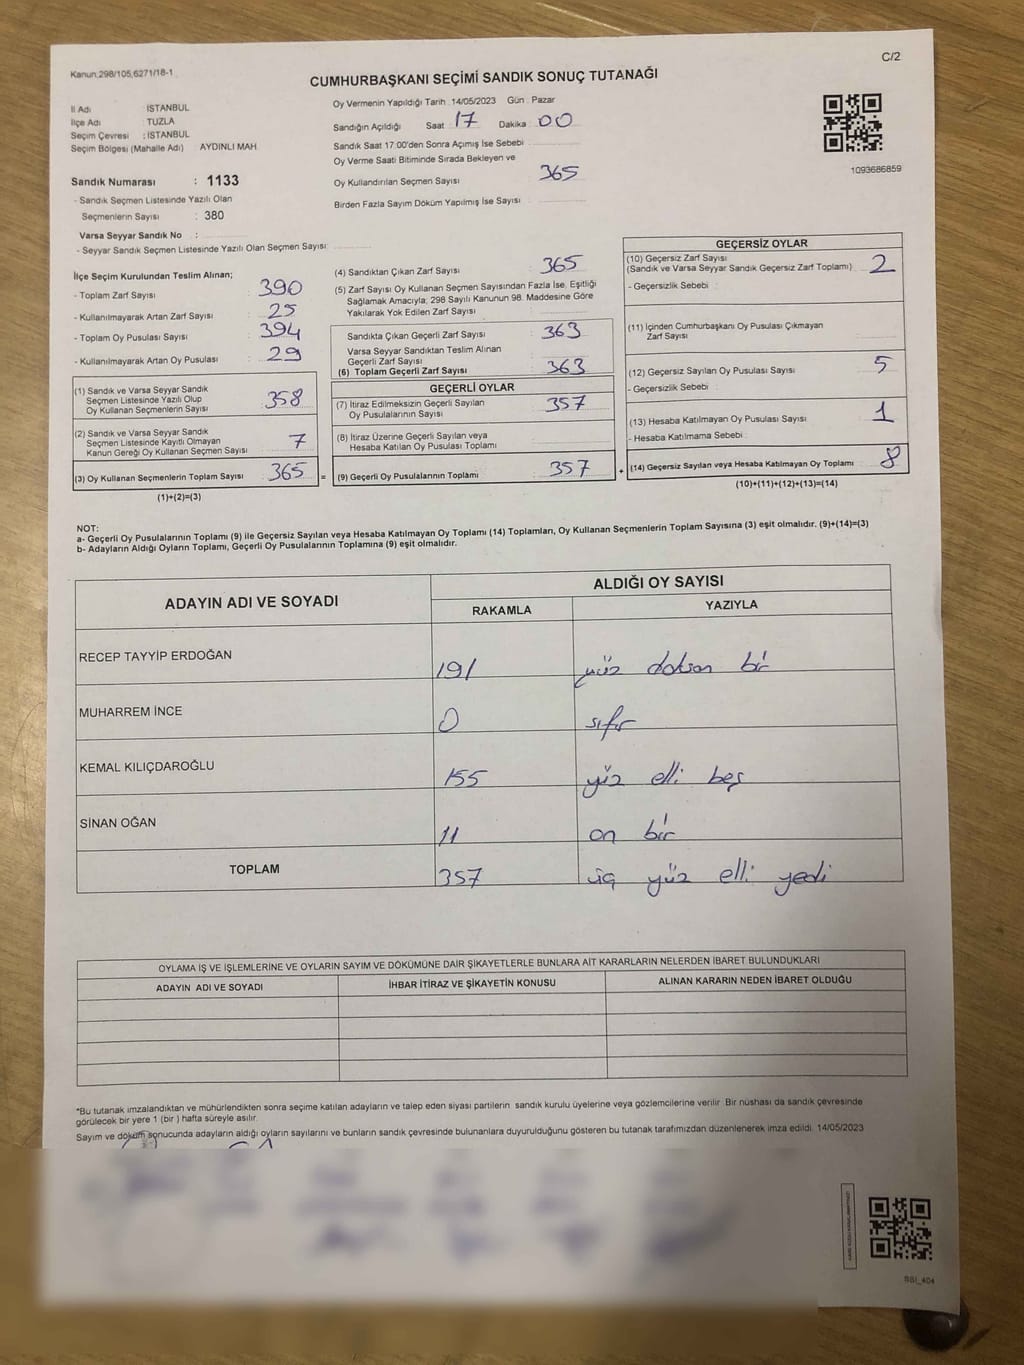 Kanun,298/105,6271/18-1
C/2
CUMHURBAŞKANI SEÇİMİ SANDIK SONUÇ TUTANAĞI
İl Adı : İSTANBUL
İlçe Adı : TUZLA
Seçim Çevresi : İSTANBUL
Seçim Bölgesi (Mahalle Adı) AYDINLI MAH
Sandık Numarası : 1133
- Sandık Seçmen Listesinde Yazılı Olan
Seçmenlerin Sayısı : 380
Varsa Seyyar Sandık No :
- Seyyar Sandık Seçmen Listesinde Yazılı Olan Seçmen Sayısı:
Oy Vermenin Yapıldığı Tarih : 14/05/2023 Gün : Pazar
Sandığın Açıldığı Saat 17 Dakika 00
Sandık Saat 17:00'den Sonra Açımış İse Sebebi
Oy Verme Saati Bitiminde Sırada Bekleyen ve
Oy Kullandırılan Seçmen Sayısı 365
Birden Fazla Sayım Döküm Yapılmış İse Sayısı
1093686859
İlçe Seçim Kurulundan Teslim Alınan;
- Toplam Zarf Sayısı : 390
- Kullanılmayarak Artan Zarf Sayısı : 25
- Toplam Oy Pusulası Sayısı : 394
- Kullanılmayarak Artan Oy Pusulası : 29
(1) Sandık ve Varsa Seyyar Sandık
Seçmen Listesinde Yazılı Olup
Oy Kullanan Seçmenlerin Sayısı 358
(2) Sandık ve Varsa Seyyar Sandık
Seçmen Listesinde Kayıtlı Olmayan
Kanun Gereği Oy Kullanan Seçmen Sayısı 7
(3) Oy Kullanan Seçmenlerin Toplam Sayısı 365 =
(1)+(2)=(3)
(4) Sandıktan Çıkan Zarf Sayısı 365
(5) Zarf Sayısı Oy Kullanan Seçmen Sayısından Fazla İse, Eşitliği
Sağlamak Amacıyla; 298 Sayılı Kanunun 98. Maddesine Göre
Yakılarak Yok Edilen Zarf Sayısı
Sandıkta Çıkan Geçerli Zarf Sayısı 363
Varsa Seyyar Sandıktan Teslim Alınan
Geçerli Zarf Sayısı
(6) Toplam Geçerli Zarf Sayısı 363
GEÇERLİ OYLAR
(7) İtiraz Edilmeksizin Geçerli Sayılan
Oy Pusulalarının Sayısı 357
(8) İtiraz Üzerine Geçerli Sayılan veya
Hesaba Katılan Oy Pusulası Toplamı
(9) Geçerli Oy Pusulalarının Toplamı 357 +
GEÇERSİZ OYLAR
(10) Geçersiz Zarf Sayısı
(Sandık ve Varsa Seyyar Sandık Geçersiz Zarf Toplamı) 2
- Geçersizlik Sebebi :
(11) İçinden Cumhurbaşkanı Oy Pusulası Çıkmayan
Zarf Sayısı
(12) Geçersiz Sayılan Oy Pusulası Sayısı 5
- Geçersizlik Sebebi :
(13) Hesaba Katılmayan Oy Pusulası Sayısı 1
- Hesaba Katılmama Sebebi :
(14) Geçersiz Sayılan veya Hesaba Katılmayan Oy Toplamı 8
(10)+(11)+(12)+(13)=(14)
NOT:
a- Geçerli Oy Pusulalarının Toplamı (9) ile Geçersiz Sayılan veya Hesaba Katılmayan Oy Toplamı (14) Toplamları, Oy Kullanan Seçmenlerin Toplam Sayısına (3) eşit olmalıdır. (9)+(14)=(3)
b- Adayların Aldığı Oyların Toplamı, Geçerli Oy Pusulalarının Toplamına (9) eşit olmalıdır.
ADAYIN ADI VE SOYADI
ALDIĞI OY SAYISI
RAKAMLA YAZIYLA
RECEP TAYYİP ERDOĞAN 191 yüz doksan bir
MUHARREM İNCE 0 sıfır
KEMAL KILIÇDAROĞLU 155 yüz elli beş
SİNAN OĞAN 11 on bir
TOPLAM 357 üç yüz elli yedi
OYLAMA İŞ VE İŞLEMLERİNE VE OYLARIN SAYIM VE DÖKÜMÜNE DAİR ŞİKAYETLERLE BUNLARA AİT KARARLARIN NELERDEN İBARET BULUNDUKLARI
ADAYIN ADI VE SOYADI İHBAR İTİRAZ VE ŞİKAYETİN KONUSU ALINAN KARARIN NEDEN İBARET OLDUĞU
*Bu tutanak imzalandıktan ve mühürlendikten sonra seçime katılan adayların ve talep eden siyasi partilerin sandık kurulu üyelerine veya gözlemcilerine verilir. Bir nüshası da sandık çevresinde
görülecek bir yere 1 (bir ) hafta süreyle asılır.
Sayım ve döküm sonucunda adayların aldığı oyların sayılarını ve bunların sandık çevresinde bulunanlara duyurulduğunu gösteren bu tutanak tarafımızdan düzenlenerek imza edildi. 14/05/2023
BBI_404